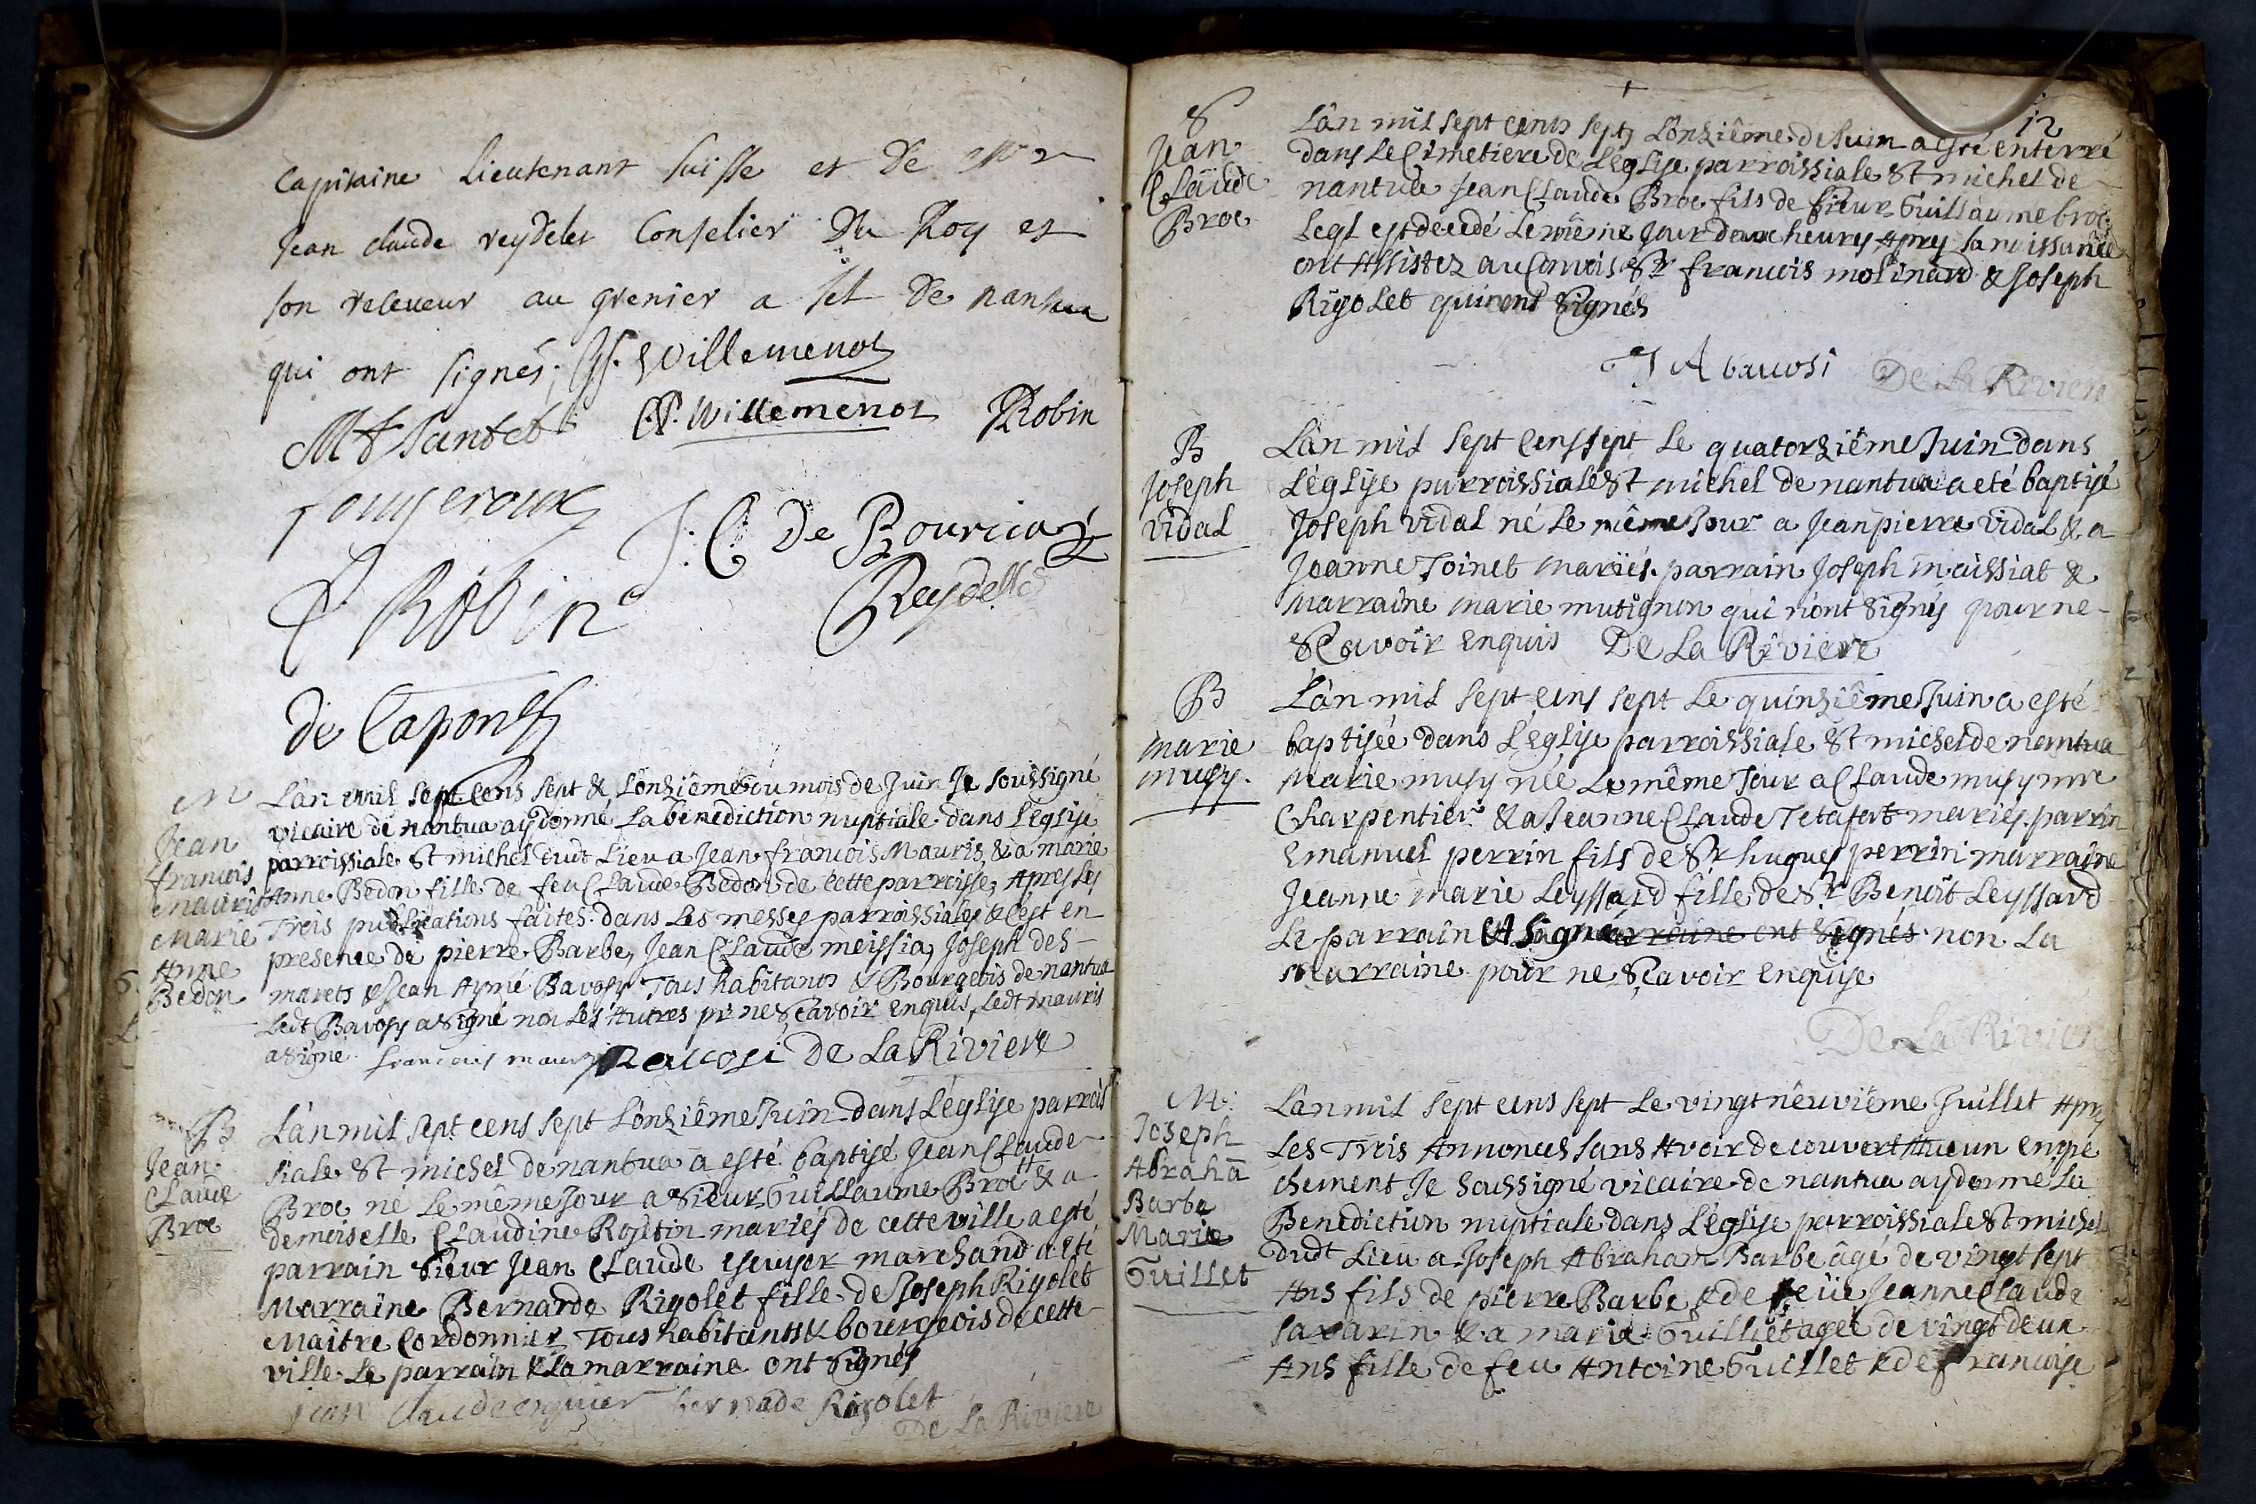 Capitaine Lieutenant Suisse et De
Jean claude reydelet Conselier Du Roy et
son releveur au grenier a sel De nantua
qui ont signés. Willemenot
C.P. Willemenot Robin
J. C. De Bouricaz
Robin Reydellet
de Capones
M
Jean
francois
mauris
Marie
Anne
Bedon
L'an mil sept Cens sept & L'onziême du mois de Juin Je soussigné
vicaire de nantua ay donné La bénediction nuptiale dans L'eglise
parroissiale St michel dudt Lieu a Jean francois Mauris & a marie
Anne Bedon fille de feu Claude Bedon de Cette parroisse, Apres Les
Trois publications faites dans Les messes parroissiales & C'est en
presence de pierre Barbe, Jean Claude meissia, Joseph des-
marets & Jean Aymé Bavosy Tous habitants & Bourgeois de nantua
Ledt Bavosy a signé non Les Autres pr ne Scavoir enquis, Ledt mauris
a signé. francois mauris Bavosi De La Riviere
B
Jean
Claude
Broc
L'an mil sept cens sept L'onziême Juin dans L'église parrois
siale St michel de nantua a esté baptisé Jean Claude
Broc né Le même Jour a Sieur Guillaume Broc & a
demoiselle Claudine Rosetin mariés de cette ville a esté
parrain Sieur Jean Claude escuyer marchand a eté
Marraine Bernarde Rigolet fille de Joseph Rigolet
Maître Cordonnier Tous habitants & bourgeois de cette
ville Le parrain & La marraine ont Signés
Jean Claude bernade Rigolet
De La Riviere
12
S
Jean
Claude
Broc
L'an mil sept cents sept L'onziême de Juin a esté enterré
dans Le Cimetiere de L'église parroissiale St michel de
nantua Jean Claude Broc fils de Sieur Guillaume broc
Leql est décédé Le même Jour deux heures Apres sa naissance
ont Assistez au Convois Sr francois molinard & Joseph
Rigolet qui ont Signés
J A bavosi De La Riviere
B
Joseph
vidal
L'an mil sept Cens sept Le quatorziême Juin dans
L'église parroissiale St michel de nantua a eté baptisé
Joseph vidal né Le même Jour a Jean pierre vidal & a
Jeanne Toinet mariés. parrain Joseph meussiat &
Marraine marie mutignon qui n'ont Signés pour ne
Scavoir enquis De La Riviere
B
marie
musy.
L'an mil sept cens sept Le quinziême Juin a esté
baptisée dans L'église parroissiale St michel de nantua
marie musy née Le même Jour a Claude musy mre
Charpentier & a Jeanne Claude Tetafort mariés. parrin
Emanuel perrin fils de Sr hugues perrin marraine
Jeanne Marie Leyssard fille de Sr Benoît Leyssard
Le parrain A Signé & la marraine ont Signés non La
marraine pour ne Scavoir enquise
De La Riviere
M.
Joseph
Abrahā
Barbe
Marie
Guillet
L'an mil sept cens sept Le vingt nêuviême Juillet Apres
Les Trois Annonces sans Avoir decouvert Aucun empe
chement Je Soussigné vicaire de nantua ay donné La
Benediction nuptiale dans L'église parroissiale St michel
dudt Lieu a Joseph Abraham Barbe âgé de vingt sept
Ans fils de pierre Barbe & de feüe Jeanne Claude
savarin & a marie Guilliet agée de vingt deux
Ans fille de feu Antoine Guillet & de francoise